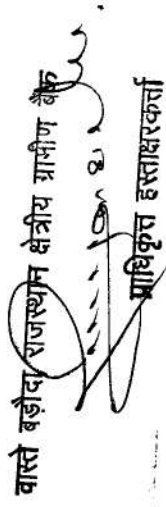 वास्ते बड़ौदा राजस्थान क्षेत्रीय ग्रामीण बैंक
प्राधिकृत हस्ताक्षरकर्ता